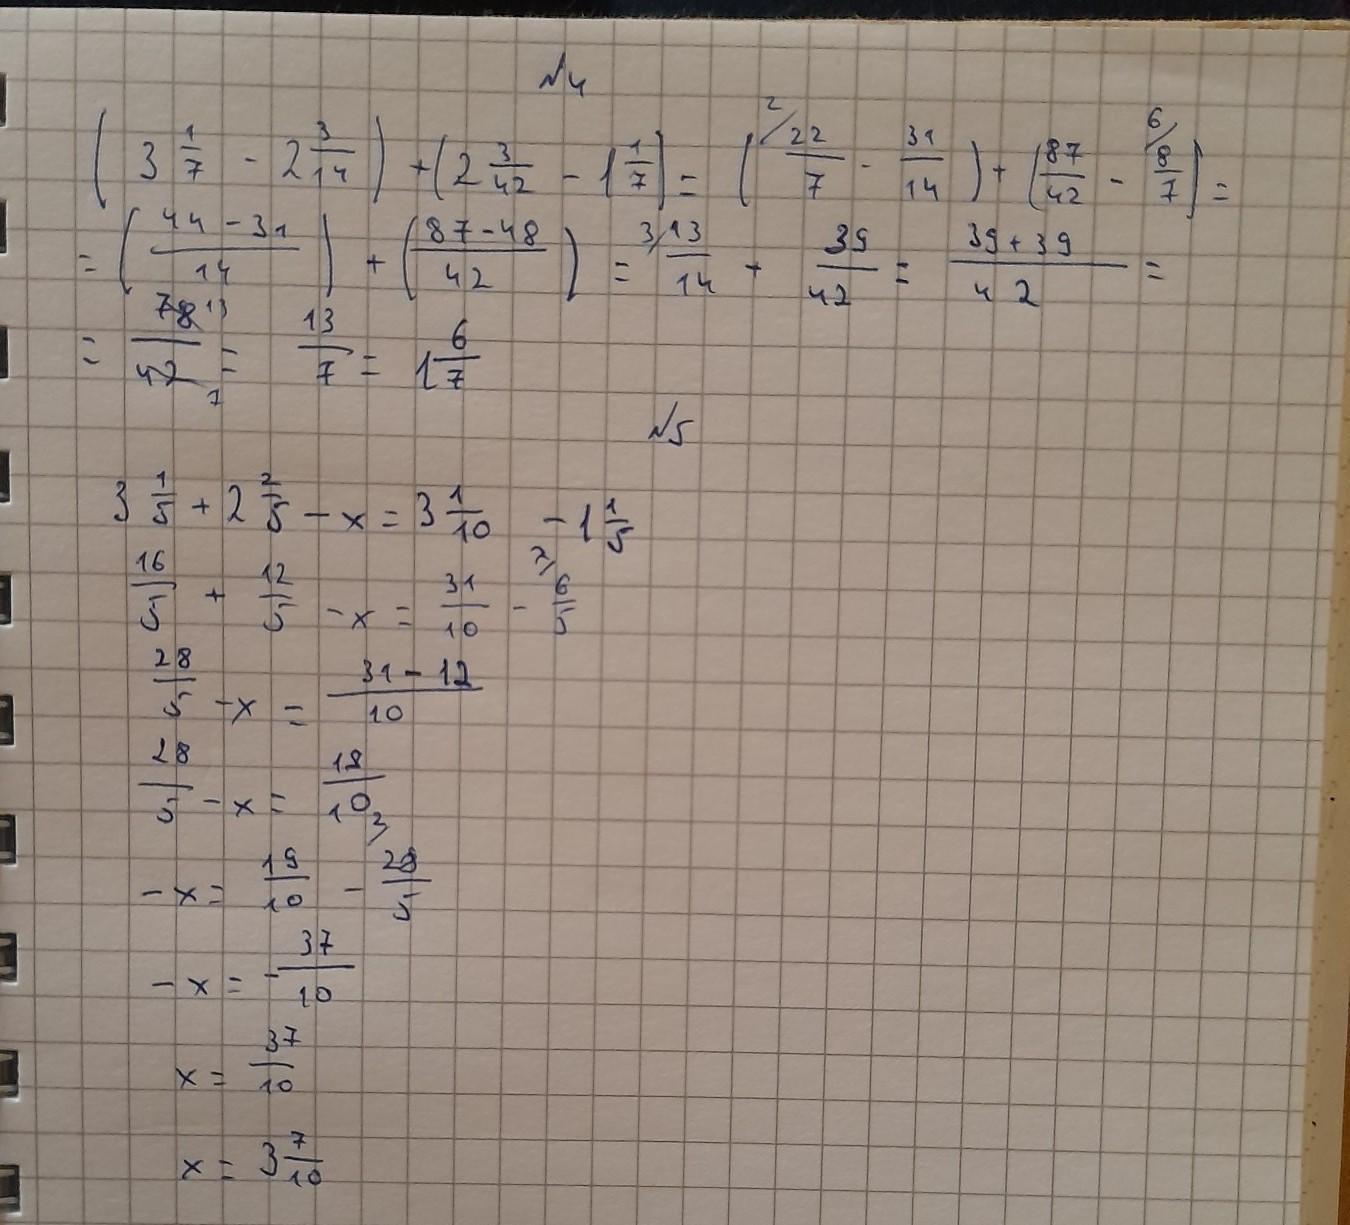 №4
(3 1/7 - 2 3/14) + (2 3/42 - 1 1/7) = (2/ 22/7 - 31/14) + (87/42 - 6/ 8/7) =
= ((44 - 31)/14) + ((87 - 48)/42) = 3/ 13/14 + 39/42 = (39 + 39)/42 =
= 78 13/42 7 = 13/7 = 1 6/7
№5
3 1/5 + 2 2/5 - x = 3 1/10 - 1 1/5
16/5 + 12/5 - x = 31/10 - 2/ 6/5
28/5 - x = (31 - 12)/10
28/5 - x = 19/10
- x = 19/10 - 2/ 28/5
- x = - 37/10
x = 37/10
x = 3 7/10